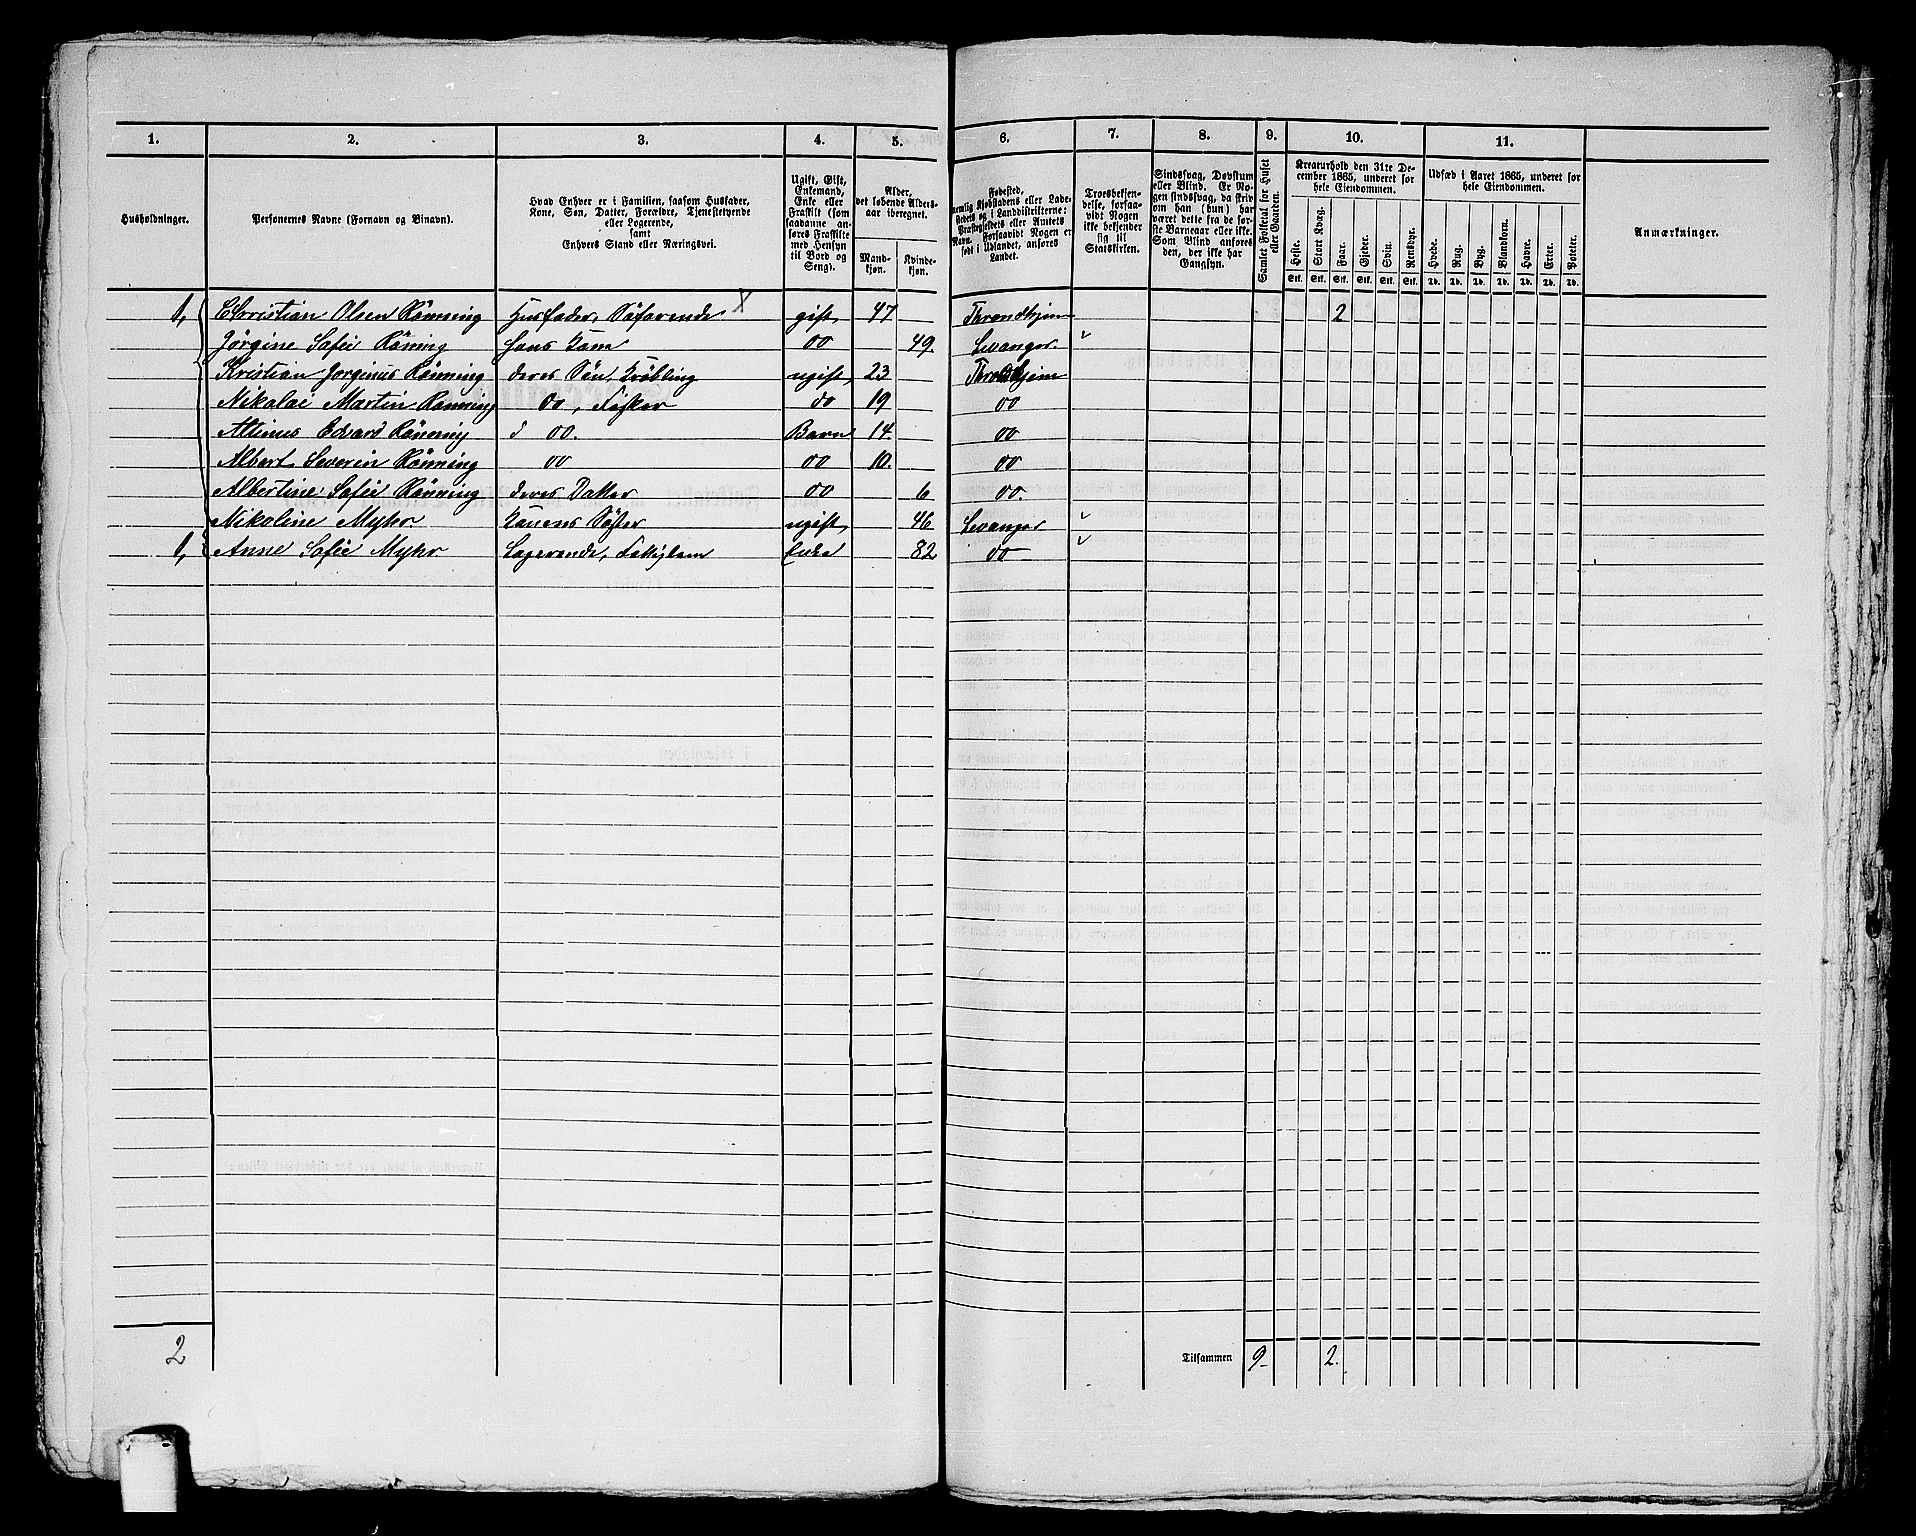 1. 2. 3. 4. 5. 6. 7. 8. 9. 10. 11.
Husholdninger.
Personernes Navne (Fornavn og Binavn).
Hvad Enhver er i Familien, saasom Husfader,
Kone, Søn, Datter, Forældre, Tjenestetyende
eller Logerende,
samt
Enhvers Stand eller Næringsvei.
Ugift, Gift,
Enkemand,
Enke eller
Fraskilt (som
saadanne an-
føres Fraskilte
med Hensyn
til Bord og
Seng).
Alder,
det løbende Alders-
aar iberegnet.
Mand-
kjøn.
Kvinde-
kjøn.
Fødested,
nemlig Kjøbstadens eller Lade-
stedets og i Landdistrikterne:
Præstegjeldets eller Amtets
Navn. Forsaavidt Nogen er
født i Udlandet, anføres
Landet.
Troesbekjen-
delse, forsaa-
vidt Nogen
ikke bekjender
sig til
Statskirken.
Sindssvag, Døvstum
eller Blind. Er No-
gen sindssvag, da skriv
om han (hun) har
været dette fra de før-
ste Barneaar eller ikke.
Som Blind anføres
den, der ikke har
Gangsyn.
Samlet Folketal for Huset
eller Gaarden.
Kreaturhold den 31te De-
cember 1865, underet for
hele Eiendommen.
Heste. Stort Kvæg. Faar. Gjeder. Svin. Rensdyr.
Stk. Stk. Stk. Stk. Stk. Stk.
Udsæd i Aaret 1865, underet for
hele Eiendommen.
Hvede. Rug. Byg. Blandkorn. Havre. Erter. Poteter.
Td. Td. Td. Td. Td. Td. Td.
Anmærkninger.
1, Christian Olsen Rønning Husfader, Søfarende x gift 47 Throndhjem 2
Jørgine Safie Røning Hans Kone oo 49. Levanger.
Kristian Jorginus Rønning deres Søn, Krøbling ugift 23 Throndhjem
Nikolai Martin Rønning oo, Fisker do 19 oo
Altinus Edvard Rønning d oo. Barn 14. oo
Albert Severin Rønning oo oo 10. oo
Albertine Safie Rønning deres Datter oo 6 oo
Nikoline Myhr. Konens Søster ugift 46 Levanger
1, Anne Safie Myhr Logerende, Fattiglem Enke 82 do
2 Tilsammen 9 2.